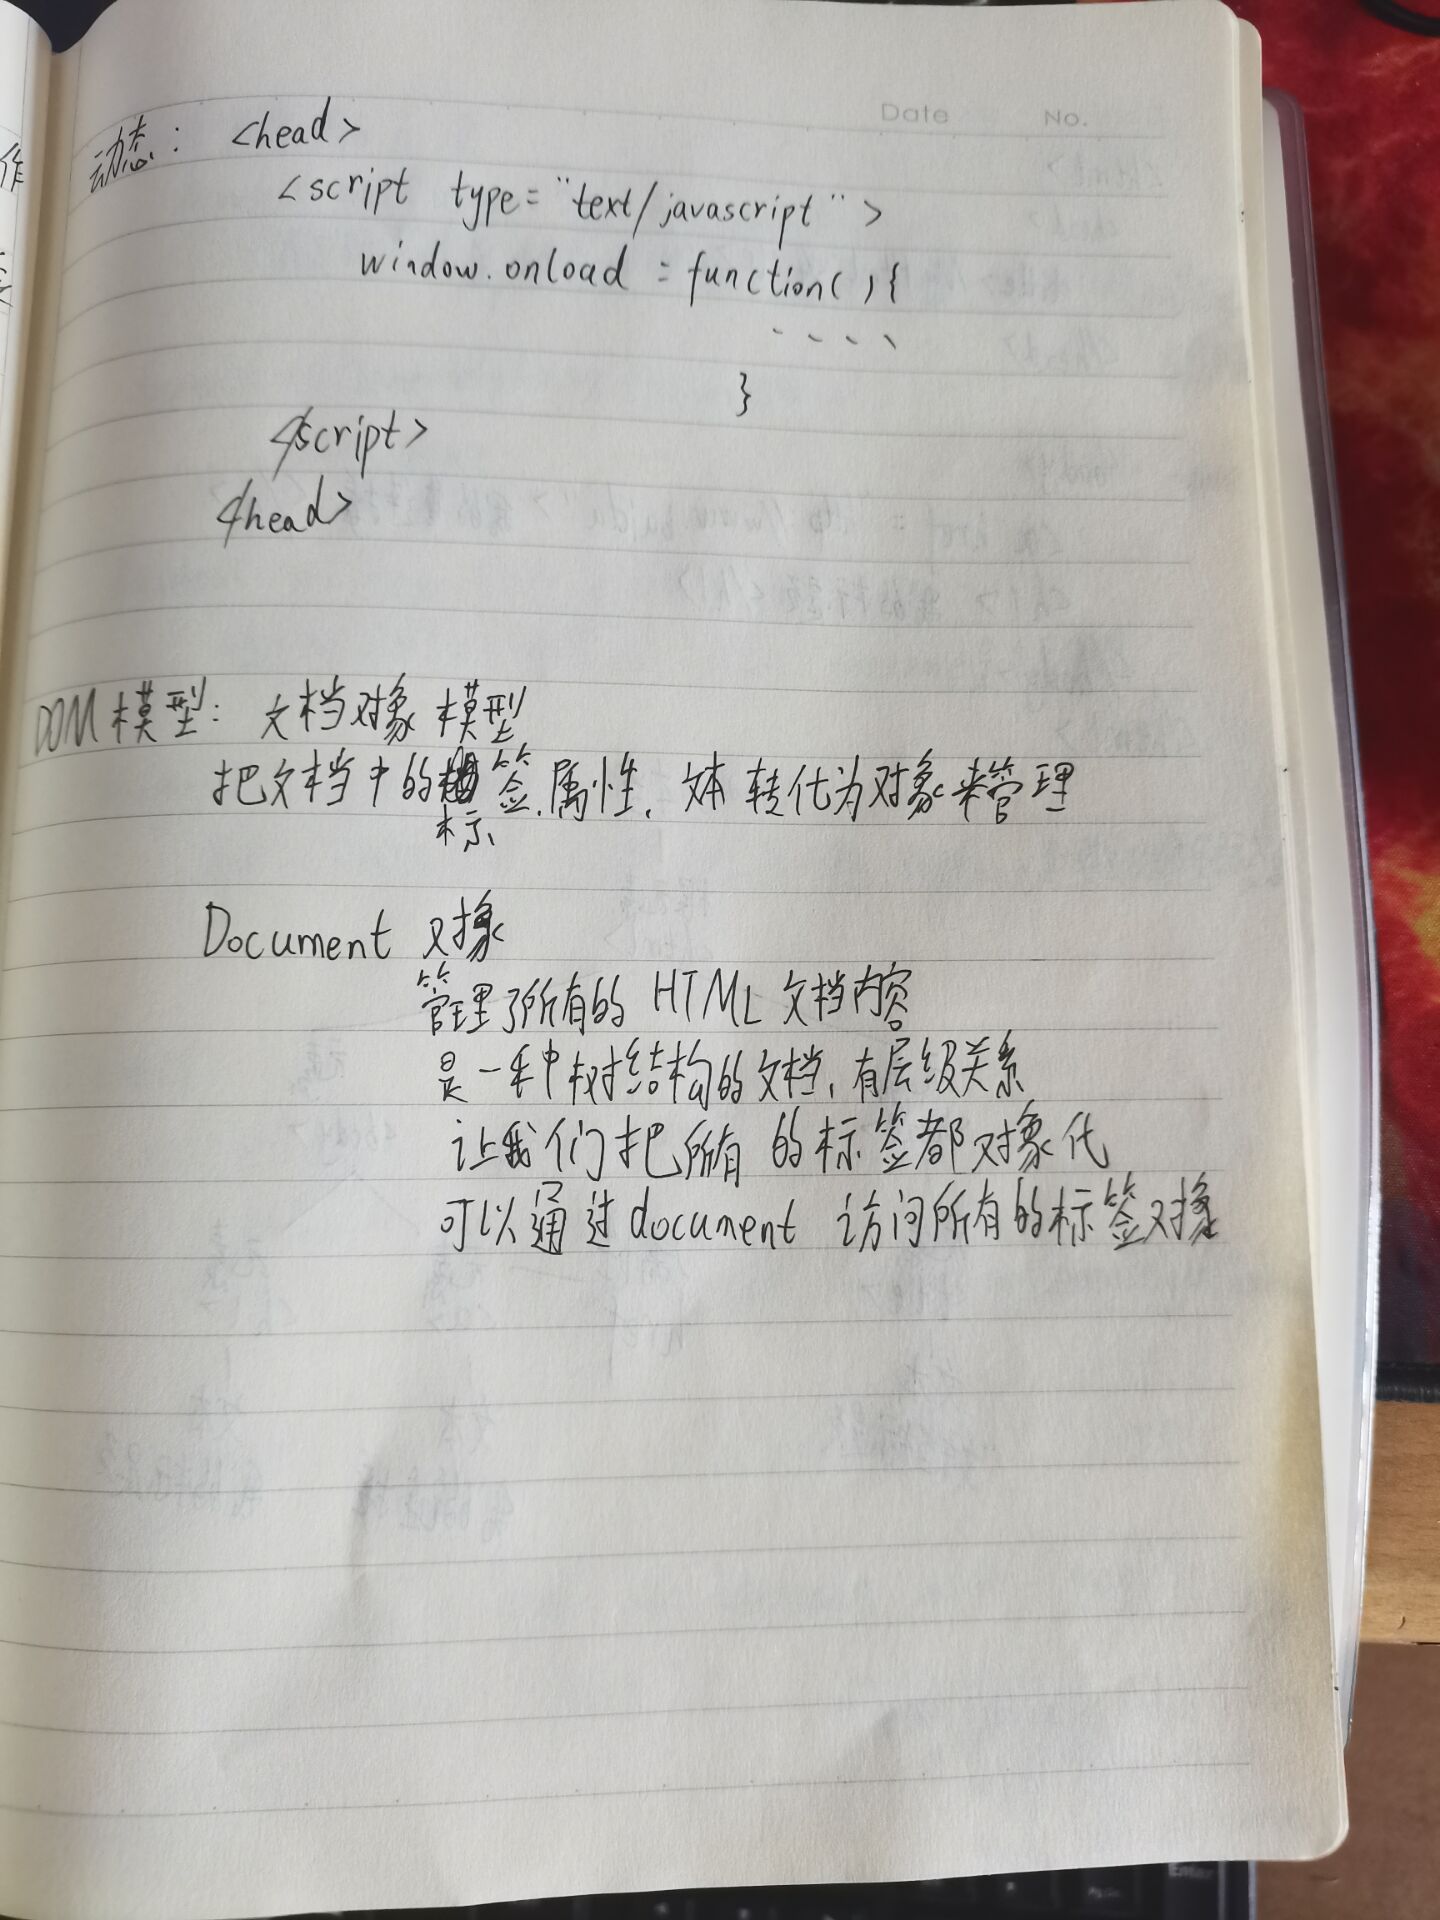 Date No.
动态: <head>
<script type="text/javascript">
window.onload = function(){
....
}
</script>
</head>
DOM模型: 文档对象模型
把文档中的标签.属性.文本 转化为对象来管理
Document 对象
管理了所有的 HTML 文档内容
是一种树结构的文档,有层级关系
让我们把所有的标签都对象化
可以通过document 访问所有的标签对象
Enter